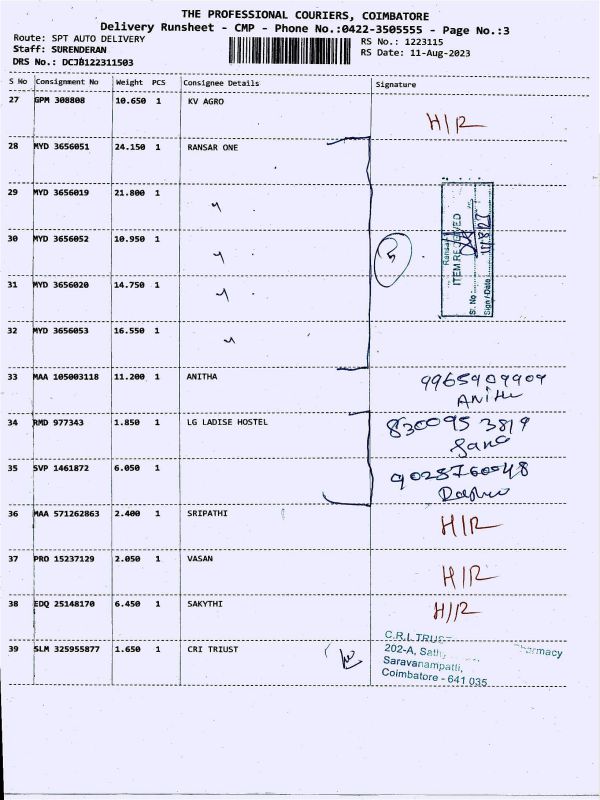 THE PROFESSIONAL COURIERS, COIMBATORE
Delivery Runsheet - CMP - Phone No.:0422-3505555 - Page No.:3
Route: SPT AUTO DELIVERY RS No.: 1223115
Staff: SURENDERAN RS Date: 11-Aug-2023
DRS No.: DCJB122311503
S No Consignment No Weight PCS Consignee Details Signature
27 GPM 308808 10.650 1 KV AGRO H/R
28 MYD 3656051 24.150 1 RANSAR ONE
29 MYD 3656019 21.800 1 "
30 MYD 3656052 10.950 1 " 5
31 MYD 3656020 14.750 1 "
32 MYD 3656053 16.550 1 "
ITEM RECEIVED
S. No:
Sign/Date
33 MAA 105003118 11.200 1 ANITHA 9965909909
34 RMD 977343 1.850 1 LG LADISE HOSTEL 830095 3819
35 SVP 1461872 6.050 1
36 MAA 571262863 2.400 1 SRIPATHI H/R
37 PRO 15237129 2.050 1 VASAN H/R
38 EDQ 25148170 6.450 1 SAKYTHI H/R
39 SLM 325955877 1.650 1 CRI TRIUST
C.R.I. TRUST
202-A,
Saravanampatti,
Coimbatore - 641 035